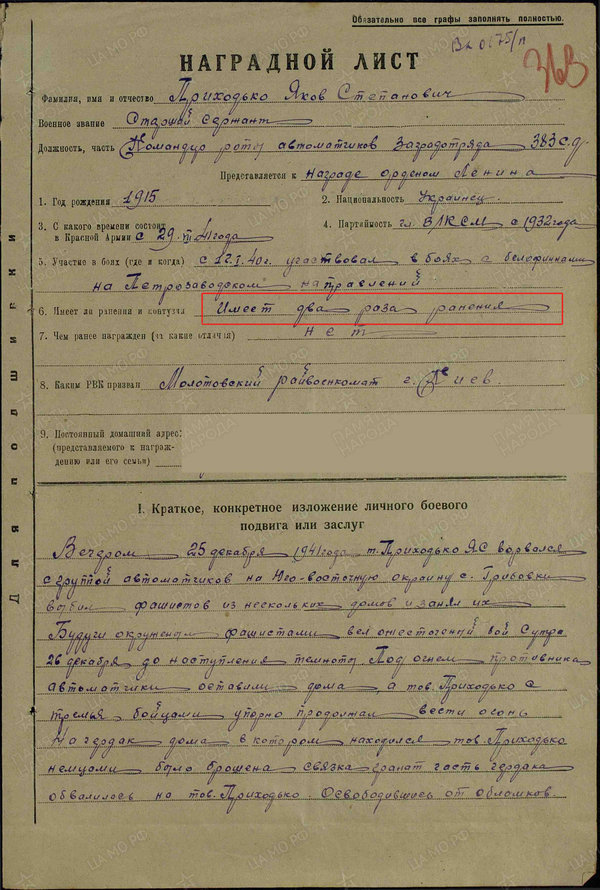 Обязательно все графы заполнять полностью.
НАГРАДНОЙ ЛИСТ
Фамилия, имя и отчество Приходько Яков Степанович
Военное звание Старший сержант
Должность, часть Командир роты автоматчиков Заградотряда 383 с.д.
Представляется к награде орденом Ленина
1. Год рождения 1915 2. Национальность Украинец
3. С какого времени состоит в Красной Армии с 29. 41 года 4. Партийность чл. ВЛКСМ с 1932 года
5. Участие в боях (где и когда) с 12.I.40 г. участвовал в боях с белофиннами
на Петрозаводском направлений
6. Имеет ли ранения и контузии Имеет два раза ранения
7. Чем ранее награжден (за какие отличия) нет
8. Каким РВК призван Молотовский райвоенкомат г. Киев.
9. Постоянный домашний адрес:
(представляемого к награж-
дению или его семьи)
Для подшивки
I. Краткое, конкретное изложение личного боевого
подвига или заслуг
Вечером 25 декабря 1941 года т. Приходько Я.С ворвался
с группой автоматчиков на Юго-восточную окраину с. Грибовки
выбил фашистов из нескольких домов и занял их
Будучи окружен фашистами вел ожесточений бой С утра
26 декабря до наступления темноты. Под огнем противника
автоматчики оставили дома, а тов. Приходько с
тремья бойцами упорно продолжал вести огонь
На чердак дома в котором находился тов. Приходько
немцами было брошена связка гранат часть чердака
обвалилось на тов. Приходько. Освободившись от обломков.
ЦАМО.РФ
ПАМЯТЬ НАРОДА